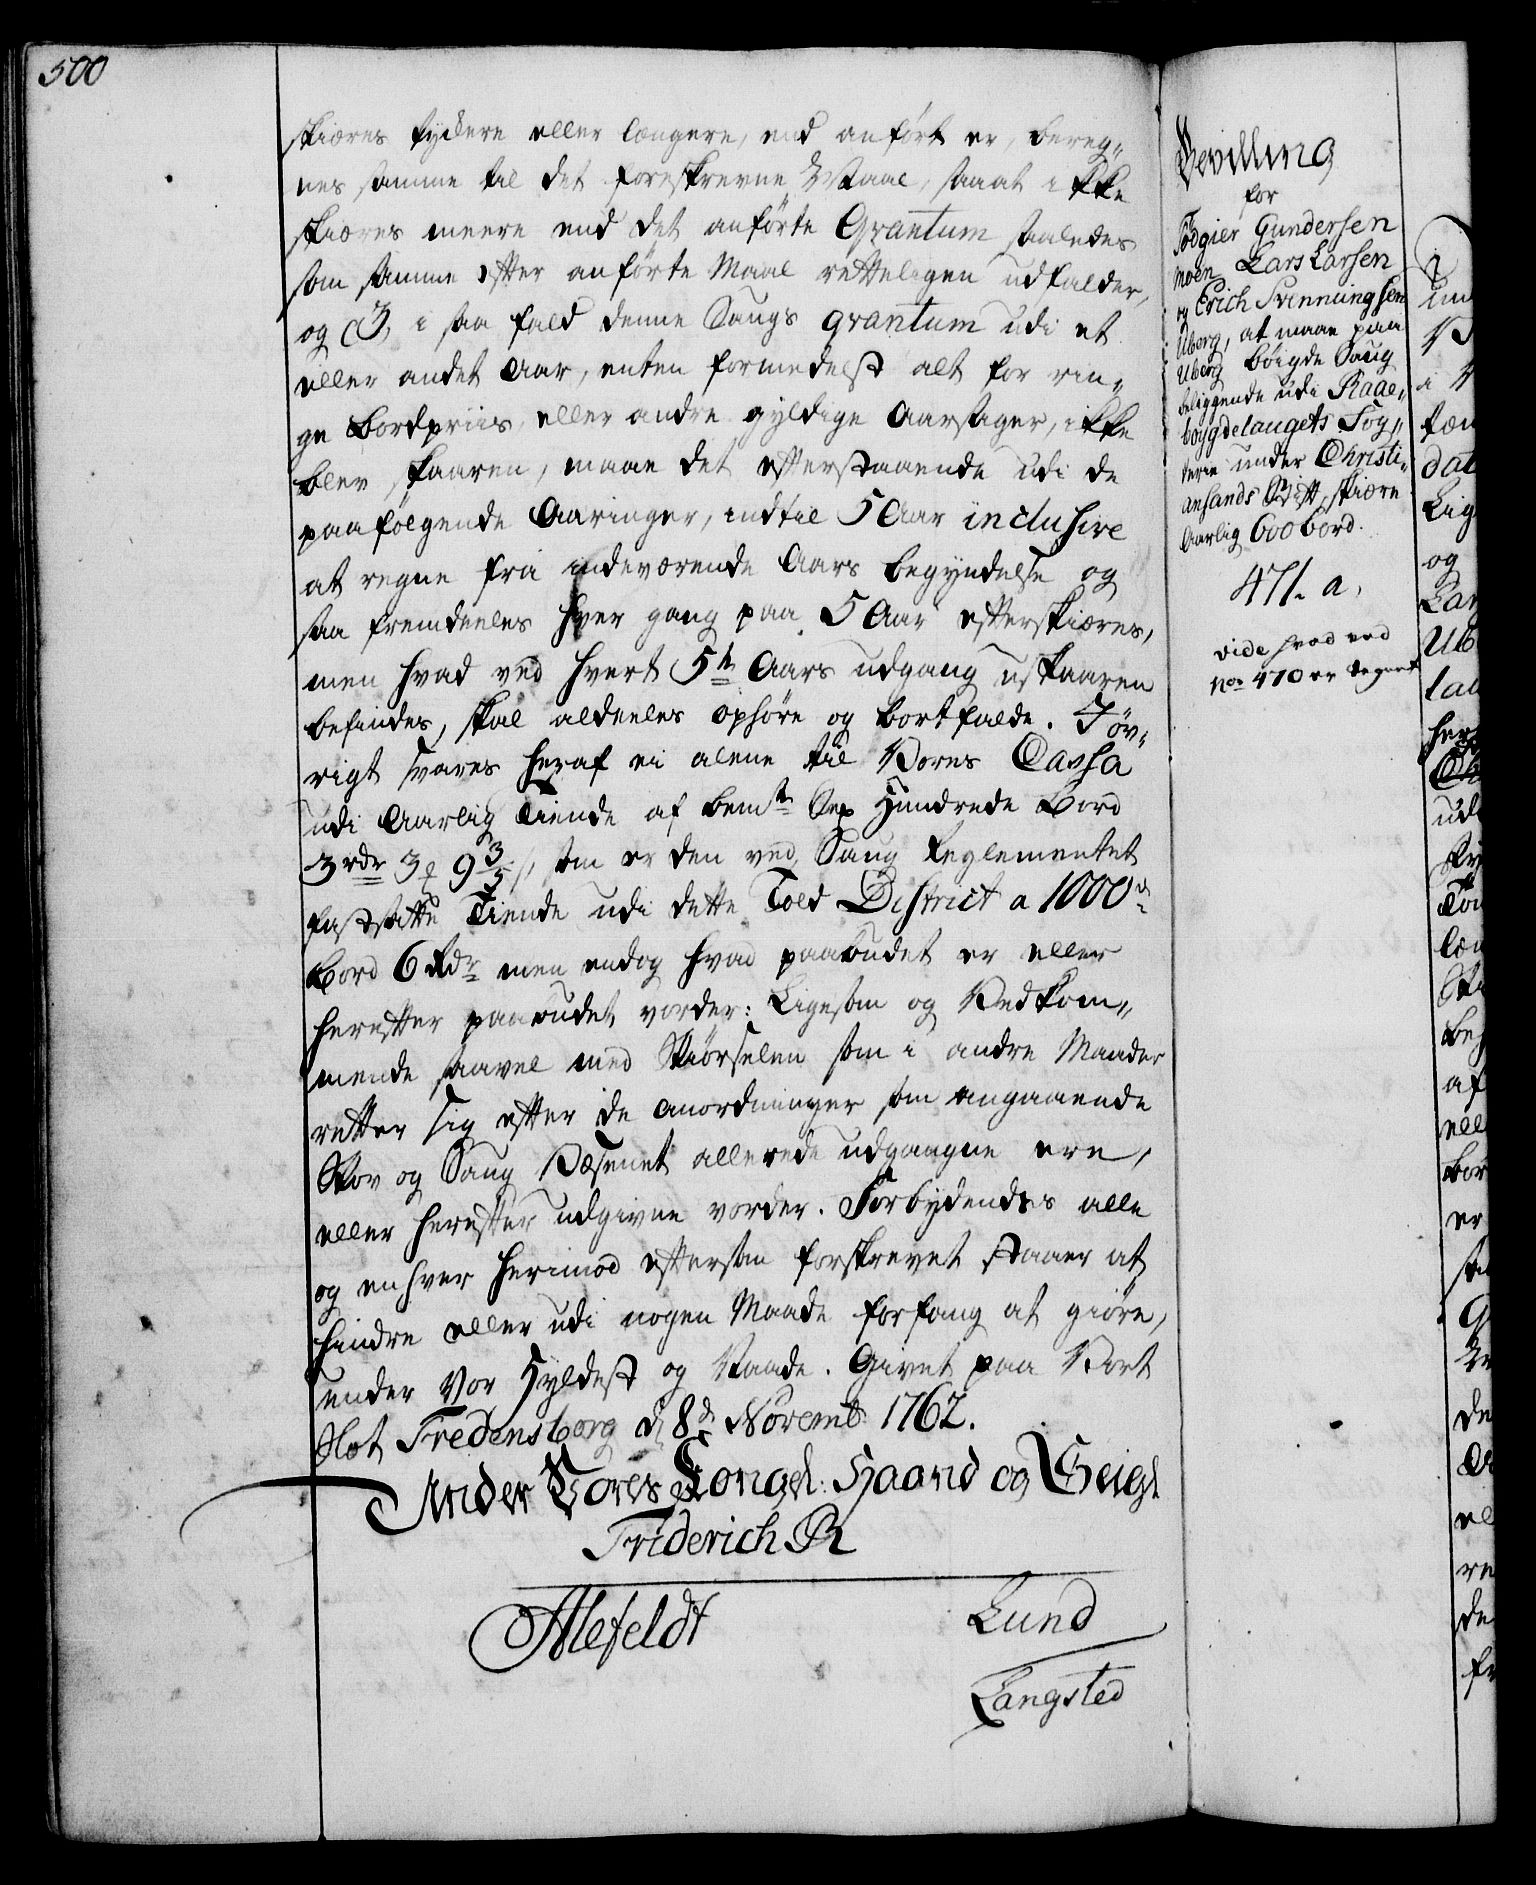 500
skiæres tyckere eller længere, end anført er, bereg„
nes samme til det foreskrevne Maal, saaat ikke
skiæres meere end det anførte Qvantum saaledes
som samme efter anførte Maal retteligen udfalder,
og (3, i saa fald denne Saugs qvantum udi et
eller andet Aar, enten formedelst alt for rin„
ge Bordpriis, eller andre gyldige Aarsager, ikke
blev skaaren, maae det efterstaaende udi de
paafølgende Aaringer, indtil 5 Aar inclusive
at regne fra indeværende Aars begyndelse og
saa fremdeeles hver gang paa 5 Aar efterskiæres,
men hvad ved hvert 5te Aars udgang uskaaren
befindes, skal aldeeles ophøre og bortfalde. I øv„
rigt svares heraf ei alene til Vores Cassa
udi Aarlig Tiende af bemte Sex Hundrede Bord
3 rdr 3 ₰ 9 3/5 s, som er den ved Saug Reglementet
fastsatte Tiende udi dette Told District a 1000de
Bord 6 Rdr men endog hvad paabudet er eller
herefter paabudet vorder: Ligesom og Vedkom„
mende saavel med Skiørselen som i andre Maader
retter sig efter de Anordninger som angaaende
Skov og Saug Væsenet allerede udgangne ere,
eller herefter udgivne vorder. Forbydendes alle
og enhver herimod eftersom forskrevet staaer at
hindre eller udi nogen Maade forfang at giøre,
under Vor Hyldest og Naade. Givet paa Vort
Slot Fredensborg d 8de Novemb: 1762.
Under Vores Kongel: Haand og Seigl
Friderich R
Alefeldt
Lund
Langsted
Bevilling
for
Todgier Gundersen
Moen Lars Larsen
og Erich Svenningsen
Uberg, at maae paa
Uberg bøigde Saug
beliggende udi Raae„
bøygdelaugets Fog„
terie under Christi„
ansands Stift, skiære
Aarlig 600 bord.
471. a.
vide hvad ved
No 470 er tegnet